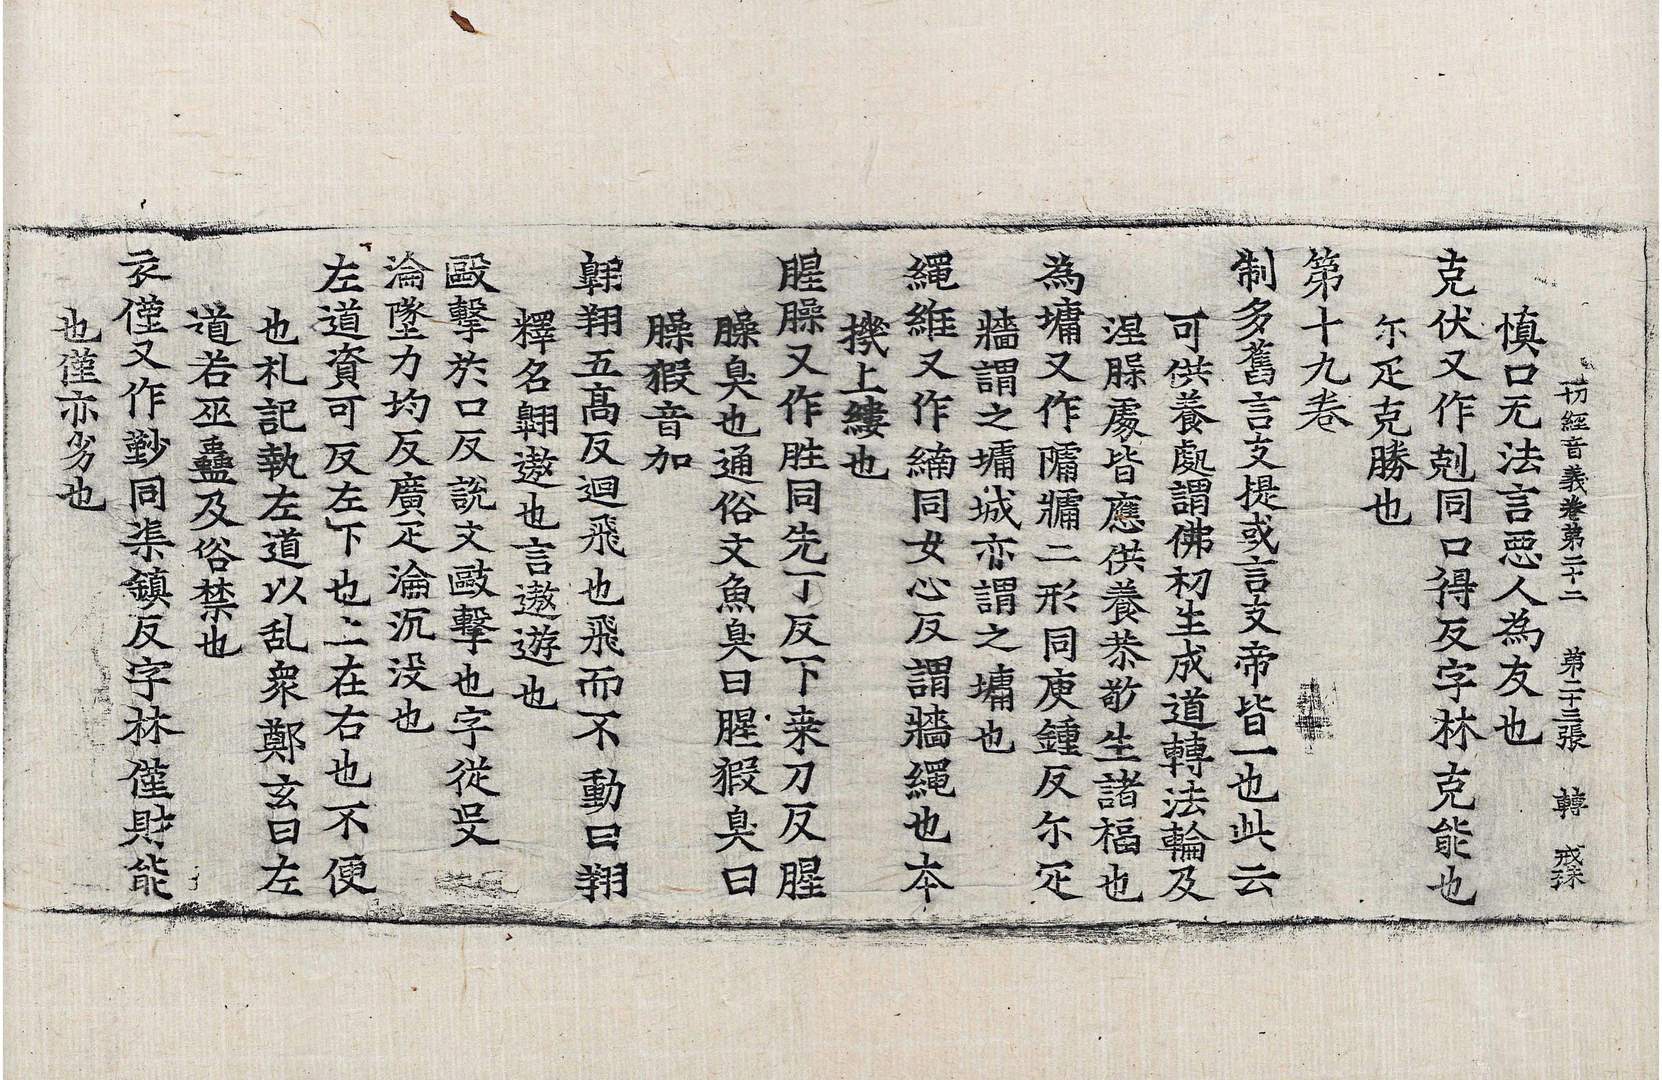 一切經音義卷第二十二 第二十三張 轉 戒深
慎口无法言惡人為友也
克伏又作剋同口得反字林克能也
尒疋克勝也
第十九卷
制多舊言支提或言支帝皆一也此云
可供養處謂佛初生成道轉法輪及
涅𦘺處皆應供養恭敬生諸福也
為墉又作𨻱牗二形同庾鍾反尒疋
牆謂之墉城亦謂之墉也
繩維又作繍同女心反謂牆繩也本
機上縷也
腥臊又作胜同先丁反下桒刀反腥
臊臭也通俗文魚臭曰腥猳臭曰
臊猳音加
翱翔五高反迴飛也飛而不動曰翔
釋名翱遨也言遨遊也
毆擊於口反說文毆擊也字從殳
淪墜力均反廣疋淪沉没也
左道資可反左下也㆓在右也不便
也札記執左道以乱衆鄭玄曰左
道若巫蠱及俗禁也
衣僅又作㔤同渠鎮反字林僅財能
也僅亦劣也